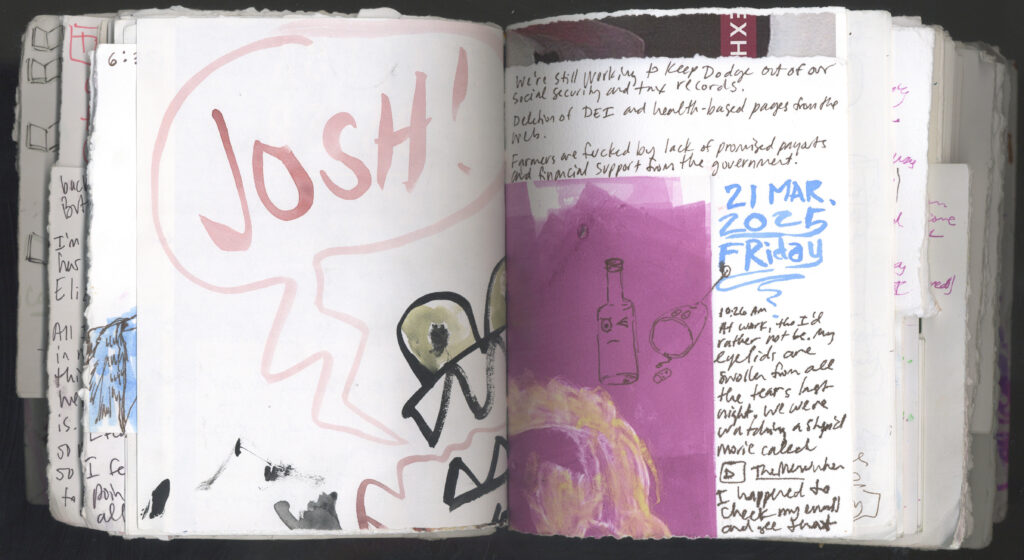 6:3
back
But
I'm
has
Eli
All
in
thi
he
is.
so
so
to
I fe
poin
all
JOSH!
EXH
We're still working to keep Dodge out of our
social security and tax records.
Deletion of DEI and health-based pages from the
web.
Farmers are fucked by lack of promised payouts
and financial support from the government.
21 MAR.
2025
FRiday
10:26 AM
At work, tho I'd
rather not be. My
eyelids are
swollen from all
the tears last
night. We were
watching a stupid
movie called
The Menu when
I happened to
check my email
and see that